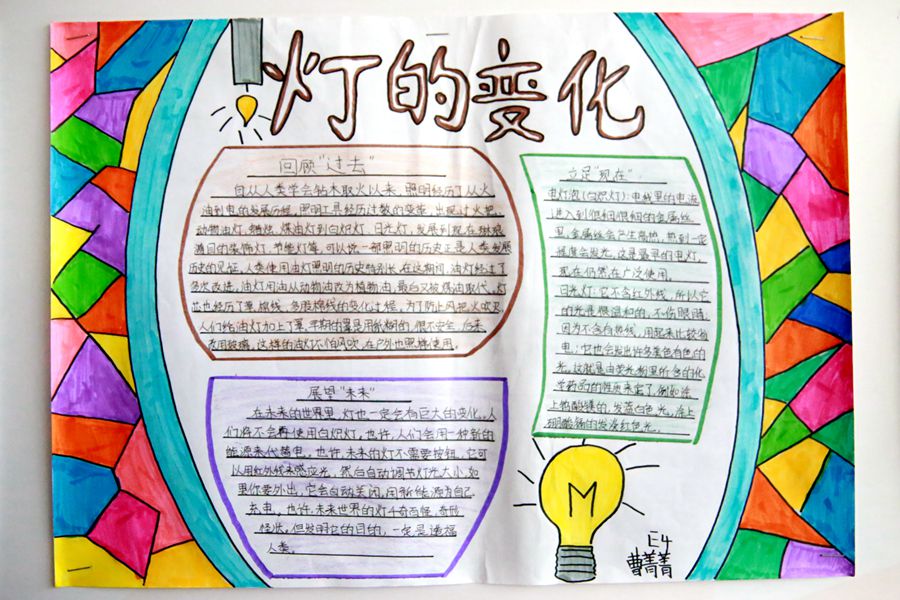 灯的变化
回顾“过去”
自从人类学会钻木取火以来,照明经历了从火、
油到电的发展历程。照明工具经历过数的变革,出现过火把、
动物油灯、蜡烛、煤油灯到白炽灯、日光灯,发展到现在琳琅
满目的装饰灯、节能灯等,可以说一部照明的历史正是人类发展
历史的见证。人类使用油灯照明的历史特别长,在这期间,油灯经过了
多次改进,油灯用油从动物油改为植物油,最后又被煤油取代。灯
芯也经历了草、棉线、多股棉线的变化过程。为了防止风把火吹灭,
人们给油灯加上了罩,早期的罩是用纸糊的,很不安全,后来
改用玻璃。这样的油灯不怕风吹,在户外也照样使用。
立足“现在”
电灯泡(白炽灯):电线里的电流
进入到很细很细的金属丝
里,金属丝会产生高热,热到一定
程度会发光,这是最早的电灯,
现在仍然在广泛使用。
日光灯:它不含红外线,所以它
的光是很温和的,不伤眼睛,
因为不含有热线,用起来比较省
电;它也会发出许多美色有色的
光,这就是由荧光粉里所含的化
学药剂的性质来定了。例如涂
上钨酸镁的,发蓝白色光,涂上
硼酸镉的发淡红色光。
展望“未来”
在未来的世界里,灯也一定会有巨大的变化,人
们将不会再使用白炽灯,也许,人们会用一种新的
能源来代替电,也许未来的灯不需要按钮,它可
以用红外线来感应光,然后自动调节灯光大小,如
果你要外出,它会自动关闭,用新能源为自己
充电,也许未来世界的灯千奇百怪,奇形
怪状,但发明它的目的,一定是造福
人类。
M
E4
曹菁菁